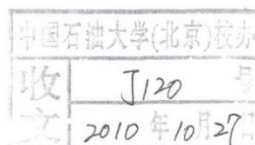 中国石油大学(北京)校办
收文
J120 号
2010 年 10 月 27 日